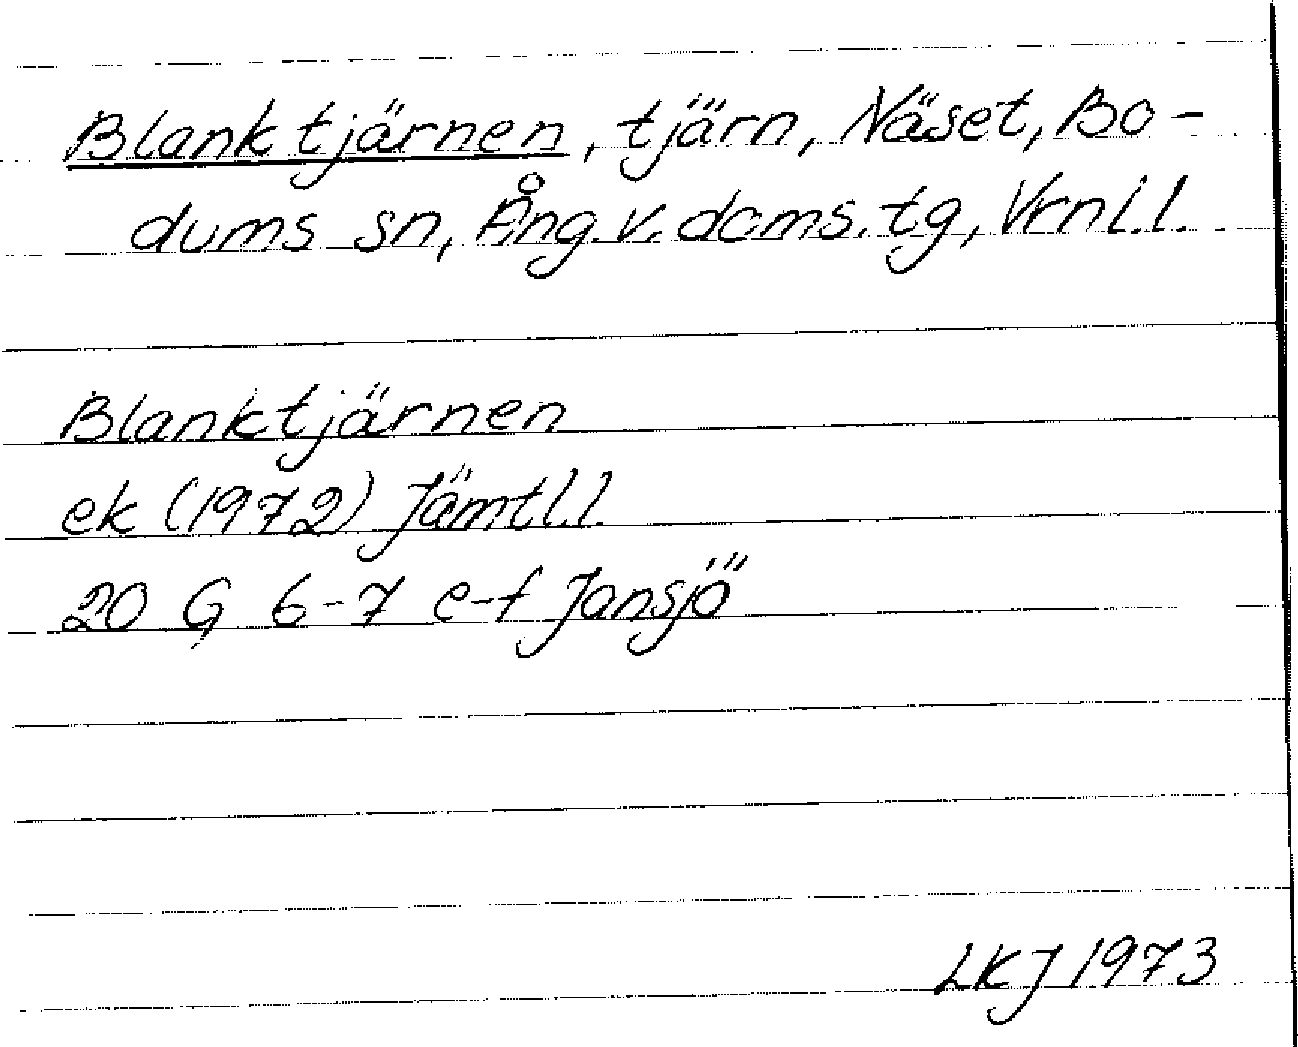 Blanktjärnen, tjärn, Näset, Bo-
dums sn, Ång. v. doms. tg, Vrnl.l.
Blanktjärnen
ek (1972) Jämtl.l.
20 G 6-7 e-f Jansjö
LKJ 1973